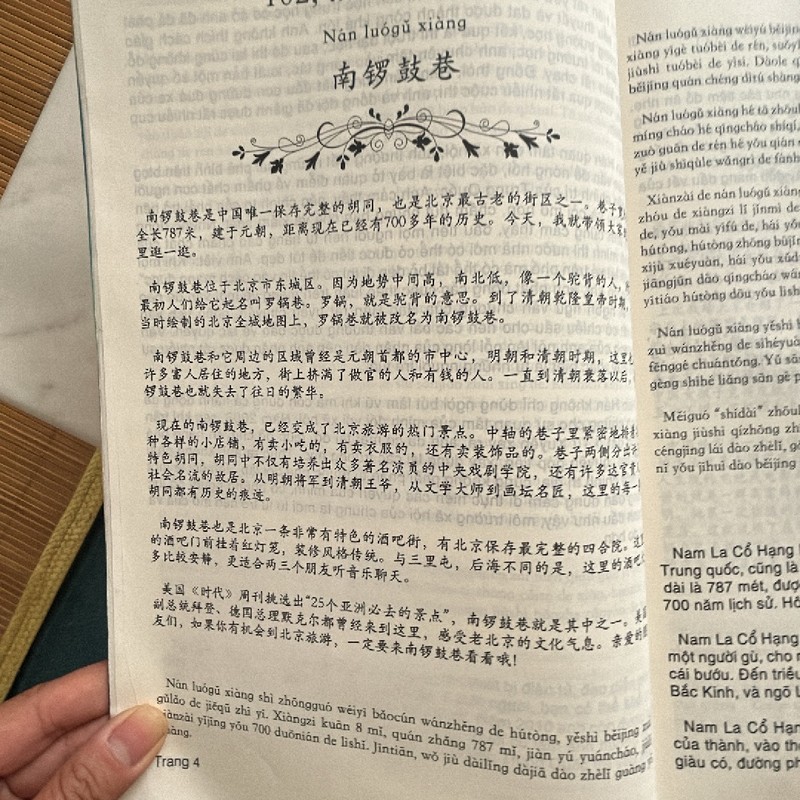 Nán luógǔ xiàng
南锣鼓巷
南锣鼓巷是中国唯一保存完整的胡同,也是北京最古老的街区之一。巷子宽
全长787米,建于元朝,距离现在已经有700多年的历史。今天,我就带领大家
里逛一逛。
南锣鼓巷位于北京市东城区。因为地势中间高,南北低,像一个驼背的人,
最初人们给它起名叫罗锅巷。罗锅,就是驼背的意思。到了清朝乾隆皇帝时期,
当时绘制的北京全城地图上,罗锅巷就被改名为南锣鼓巷。
南锣鼓巷和它周边的区域曾经是元朝首都的市中心,明朝和清朝时期,这里
许多富人居住的地方,街上挤满了做官的人和有钱的人。一直到清朝衰落以后,
锣鼓巷也就失去了往日的繁华。
现在的南锣鼓巷,已经变成了北京旅游的热门景点。中轴的巷子里紧密地排
种各样的小店铺,有卖小吃的,有卖衣服的,还有卖装饰品的。巷子两侧分出
特色胡同,胡同中不仅有培养出众多著名演员的中央戏剧学院,还有许多达官
社会名流的故居。从明朝将军到清朝王爷,从文学大师到画坛名匠,这里的每一
胡同都有历史的痕迹。
南锣鼓巷也是北京一条非常有特色的酒吧街,有北京保存最完整的四合院。这
的酒吧门前挂着红灯笼,装修风格传统。与三里屯,后海不同的是,这里的酒吧
多比较安静,更适合两三个朋友听音乐聊天。
美国《时代》周刊挑选出“25个亚洲必去的景点”,南锣鼓巷就是其中之一。美国
副总统拜登、德国总理默克尔都曾经来到这里,感受老北京的文化气息。亲爱的
友们,如果你有机会到北京旅游,一定要来南锣鼓巷看看哦!
Nán luógǔ xiàng shì zhōngguó wéiyī bǎocún wánzhěng de hútòng, yěshì běijīng
gǔlǎo de jiēqū zhī yī. Xiàngzi kuān 8 mǐ, quán zhǎng 787 mǐ, jiàn yú yuáncháo,
xiànzài yǐjīng yǒu 700 duōnián de lìshǐ. Jīntiān, wǒ jiù dàilǐng dàjiā dào zhèlǐ guàng
Trang 4
Nán luógǔ xiàng wèiyú běijīn
xiàng yīgè tuóbèi de rén, suǒy
jiùshì tuóbèi de yìsi. Dàole q
běijīng quán chéng dìtú shàng
Nán luógǔ xiàng hé tā zhōu
míng cháo hé qīngcháo shíqí,
zuò guān de rén hé yǒu qián
yě jiù shīqùle wǎngrì de fánh
Xiànzài de nán luógǔ xiàng
zhóu de xiàngzi lǐ jǐnmì de
de, yǒu mài yīfú de, hái yǒ
hútòng, hútòng zhōng bùjǐn
xìjù xuéyuàn, hái yǒu xǔd
jiāngjūn dào qīngcháo wán
yītiáo hútòng dōu yǒu lìsh
Nán luógǔ xiàng yěshì b
zuì wánzhěng de sìhéyuà
fēnggé chuántǒng. Yǔ sān
gèng shìhé liǎng sān gè p
Měiguó “shídài” zhōuk
xiàng jiùshì qízhōng zh
céngjīng lái dào zhèlǐ, gǎ
nǐ yǒu jīhuì dào běijīng
Nam La Cổ Hạng
Trung quốc, cũng là
dài là 787 mét, đượ
700 năm lịch sử. Hô
Nam La Cổ Hạng
một người gù, cho n
cái bướu. Đến triều
Bắc Kinh, và ngõ L
Nam La Cổ Hạng
của thành, vào th
giàu có, đường ph